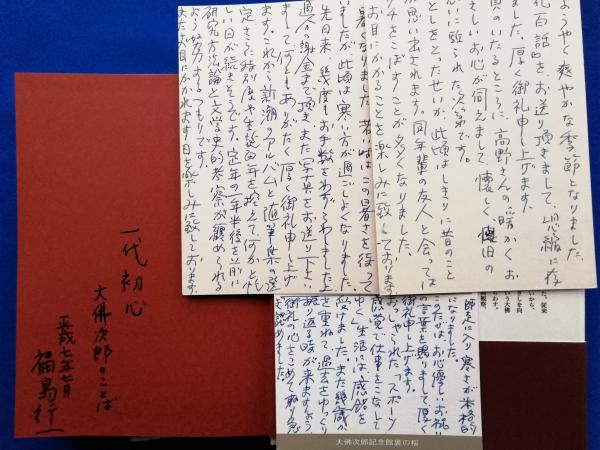 ようやく爽やかな季節となりました。
花百話』をお送り頂きまして、恐縮に存
ました。厚く御礼申し上げます。
頁のいたるところに、高野さんの暖かくお
さしいお心が伺えまして、懐しく、懐旧の
思いに駆られた次第です。
としをとったせいか、此頃はしきりに昔のこと
が思い出されます。同年輩の友人と会っては
グチをこぼすことが多くなりました。
お目にかかることを楽しみに致しております。
暑くなりました。若い時はこの暑さを待って
いましたが此頃は寒い方が過ごしよくなりました。
先日来、幾度もお手数をわずらわしました上
過分の謝金まで頂き、また写真をお送り下さい
まして、何ともありがたく厚く御礼申し上げ
ます。これから新潮アルバムと随筆集の選
しい日が続きそうです。定年の一年半後を前に
研究方法論と文学史的考察が纏められる
よう努力するつもりです。
またお目にかかれます日を楽しみに致しております。
師走に入り、寒さが本格的
になりました。
このたびは、お心優しいお祝い
の言葉を賜りまして、厚く
御礼申し上げます。
おっしゃられた「スポーツ
感覚で仕事をこなして
ゆく」生活には感銘を
受けました。また幾歳か
を重ねて、過去をゆっくり
ふり返る時が来ますよう
御礼の心をこめて
大佛次郎記念館裏の桜
一代初心
大佛次郎のことば
平成七年七月
福島行一